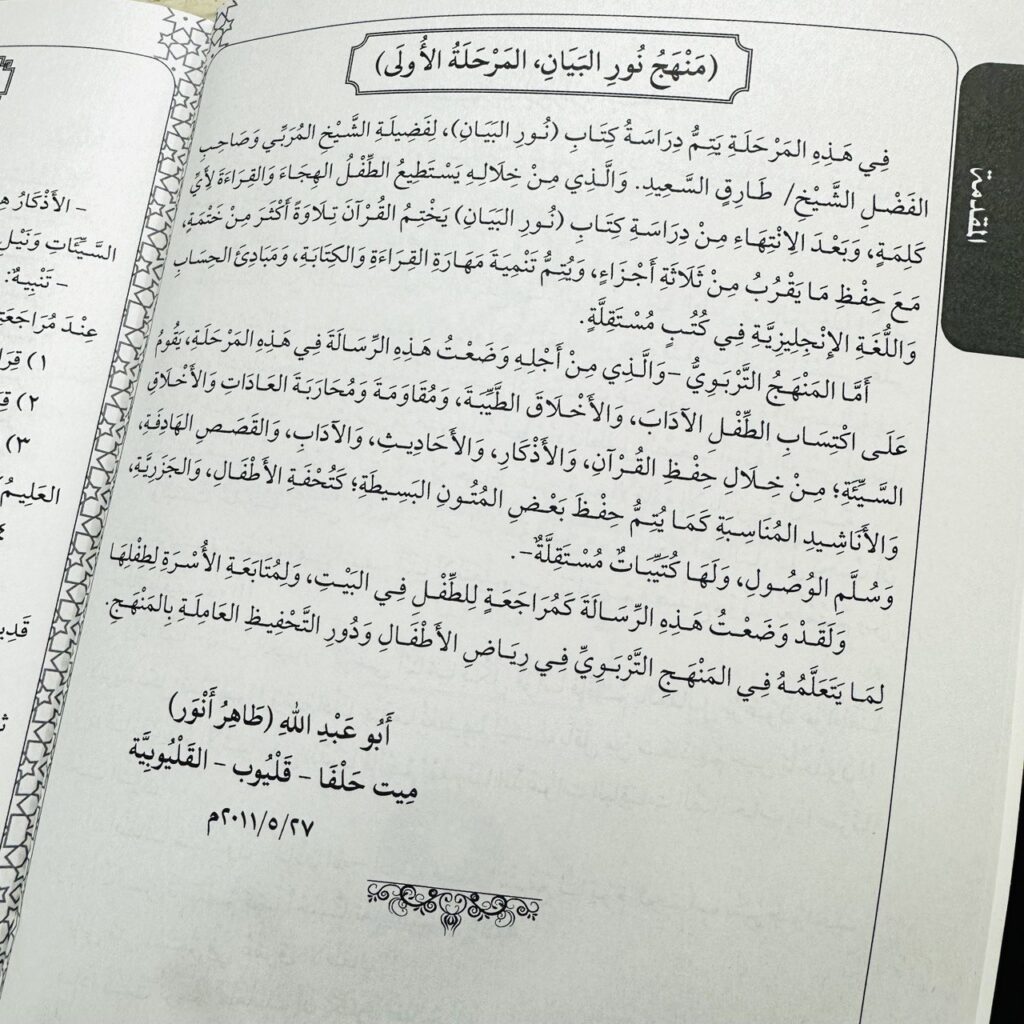 (مَنْهَجُ نُورِ البَيَانِ، المَرْحَلَةُ الأُولَى)
فِي هَذِهِ المَرْحَلَةِ يَتِمُّ دِرَاسَةُ كِتَابِ (نُورِ البَيَانِ)، لِفَضِيلَةِ الشَّيْخِ المُرَبِّي وَصَاحِبِ
الفَضْلِ الشَّيْخِ/ طَارِقٍ السَّعِيدِ. وَالَّذِي مِنْ خِلَالِهِ يَسْتَطِيعُ الطِّفْلُ الهِجَاءَ وَالقِرَاءَةَ لِأَيِّ
كَلِمَةٍ، وَبَعْدَ الِانْتِهَاءِ مِنْ دِرَاسَةِ كِتَابِ (نُورِ البَيَانِ) يَخْتِمُ القُرْآنَ تِلَاوَةً أَكْثَرَ مِنْ خَتْمَةٍ،
مَعَ حِفْظِ مَا يَقْرُبُ مِنْ ثَلَاثَةِ أَجْزَاءٍ، وَيُتِمُّ تَنْمِيَةَ مَهَارَةِ القِرَاءَةِ وَالكِتَابَةِ، وَمَبَادِئَ الحِسَابِ
وَاللُّغَةِ الإِنْجِلِيزِيَّةِ فِي كُتُبٍ مُسْتَقِلَّةٍ.
أَمَّا المَنْهَجُ التَّرْبَوِيُّ -وَالَّذِي مِنْ أَجْلِهِ وَضَعْتُ هَذِهِ الرِّسَالَةَ فِي هَذِهِ المَرْحَلَةِ، يَقُومُ
عَلَى اكْتِسَابِ الطِّفْلِ الآدَابَ، وَالأَخْلَاقَ الطَّيِّبَةَ، وَمُقَاوَمَةَ وَمُحَارَبَةَ العَادَاتِ وَالأَخْلَاقِ
السَّيِّئَةِ؛ مِنْ خِلَالِ حِفْظِ القُرْآنِ، وَالأَذْكَارِ، وَالأَحَادِيثِ، وَالآدَابِ، وَالقَصَصِ الهَادِفَةِ،
وَالأَنَاشِيدِ المُنَاسِبَةِ كَمَا يُتِمُّ حِفْظَ بَعْضِ المُتُونِ البَسِيطَةِ؛ كَتُحْفَةِ الأَطْفَالِ، وَالجَزَرِيَّةِ،
وَسُلَّمِ الوُصُولِ، وَلَهَا كُتَيِّبَاتٌ مُسْتَقِلَّةٌ-.
وَلَقَدْ وَضَعْتُ هَذِهِ الرِّسَالَةَ كَمُرَاجَعَةٍ لِلطِّفْلِ فِي البَيْتِ، وَلِمُتَابَعَةِ الأُسْرَةِ لِطِفْلِهَا
لِمَا يَتَعَلَّمُهُ فِي المَنْهَجِ التَّرْبَوِيِّ فِي رِيَاضِ الأَطْفَالِ وَدُورِ التَّحْفِيظِ العَامِلَةِ بِالمَنْهَجِ.
أَبُو عَبْدِ اللهِ (طَاهِرُ أَنْوَر)
مِيت حَلْفَا - قَلْيُوب - القَلْيُوبِيَّة
٢٠١١/٥/٢٧م
المقدمة
- الأَذْكَارُ
السَّيِّئَاتِ وَنَيْلِ
- تَنْبِيهٌ:
عِنْدَ مُرَاجَعَةِ
١)
٢)
٣)
العَلِيمُ